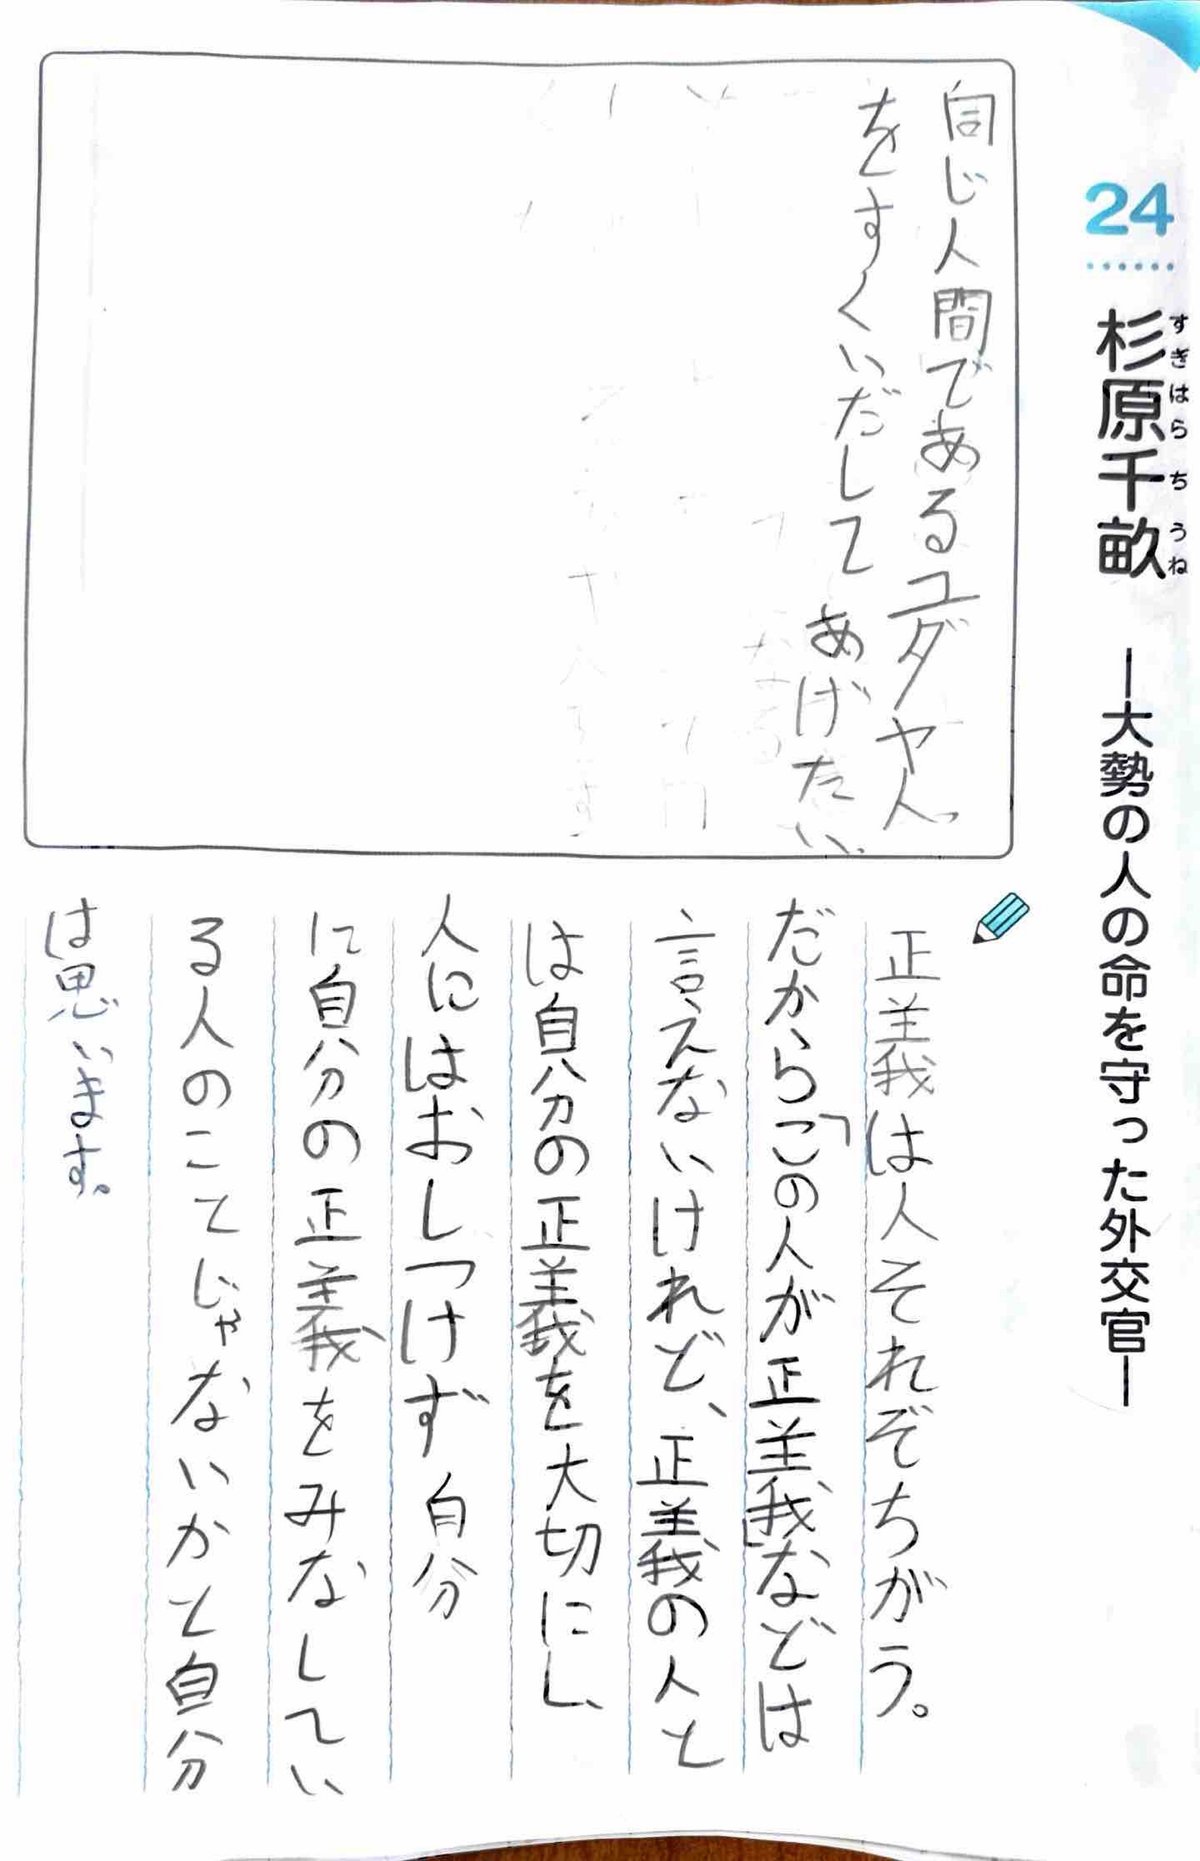 24 杉原千畝 ―大勢の人の命を守った外交官―
すぎはらちうね
同じ人間であるユダヤ人
をすくいだしてあげたい。
正義は人それぞちがう。
だから「この人が正義」などは
言えないけれど、正義の人と
は自分の正義を大切にし、
人にはおしつけず自分
に自分の正義をみなしてい
る人のことじゃないかと自分
は思います。